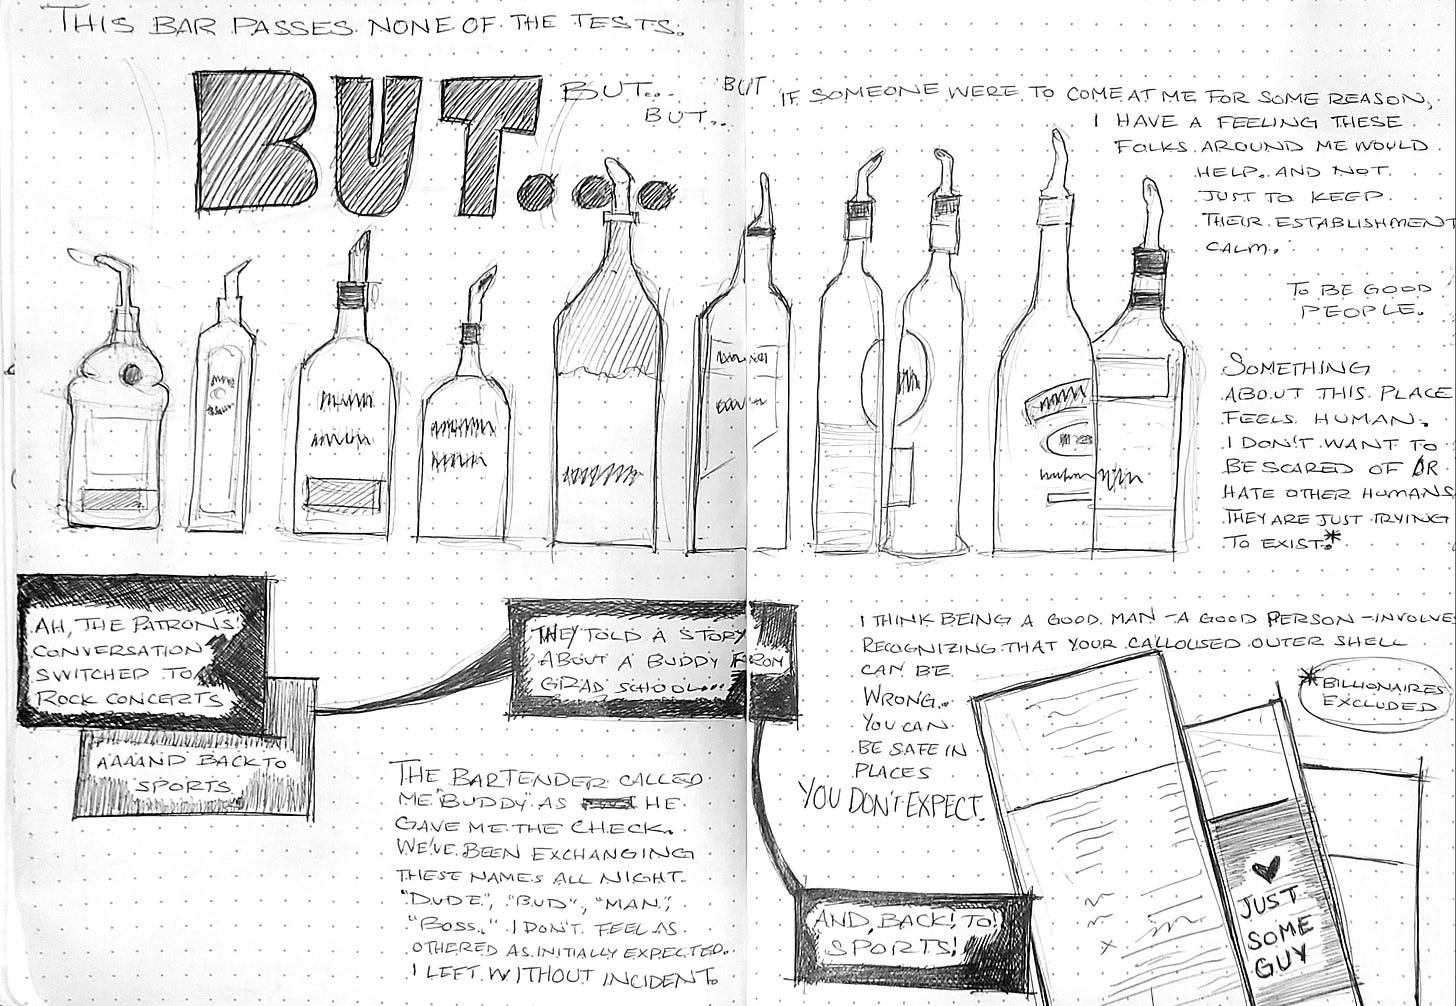 THIS BAR PASSES NONE OF THE TESTS.
BUT...
BUT...
BUT...
BUT
IF SOMEONE WERE TO COME AT ME FOR SOME REASON,
I HAVE A FEELING THESE
FOLKS AROUND ME WOULD
HELP. AND NOT
JUST TO KEEP
THEIR ESTABLISHMENT
CALM.
TO BE GOOD
PEOPLE.
SOMETHING
ABOUT THIS PLACE
FEELS HUMAN.
I DON'T WANT TO
BE SCARED OF OR
HATE OTHER HUMANS
THEY ARE JUST TRYING
TO EXIST.*
AH, THE PATRONS'
CONVERSATION
SWITCHED TO
ROCK CONCERTS
AAAAND BACK TO
SPORTS.
THEY TOLD A STORY
ABOUT A BUDDY FROM
GRAD SCHOOL...
THE BARTENDER CALLED
ME "BUDDY" AS HE
GAVE ME THE CHECK.
WE'VE BEEN EXCHANGING
THESE NAMES ALL NIGHT.
"DUDE", "BUD", "MAN",
"BOSS." I DON'T FEEL AS
OTHERED AS INITIALLY EXPECTED.
I LEFT WITHOUT INCIDENT.
I THINK BEING A GOOD MAN - A GOOD PERSON - INVOLVES
RECOGNIZING THAT YOUR CALLOUSED OUTER SHELL
CAN BE
WRONG.
YOU CAN
BE SAFE IN
PLACES
YOU DON'T EXPECT.
*BILLIONAIRES
EXCLUDED
AND, BACK! TO!
SPORTS!
♥
JUST
SOME
GUY